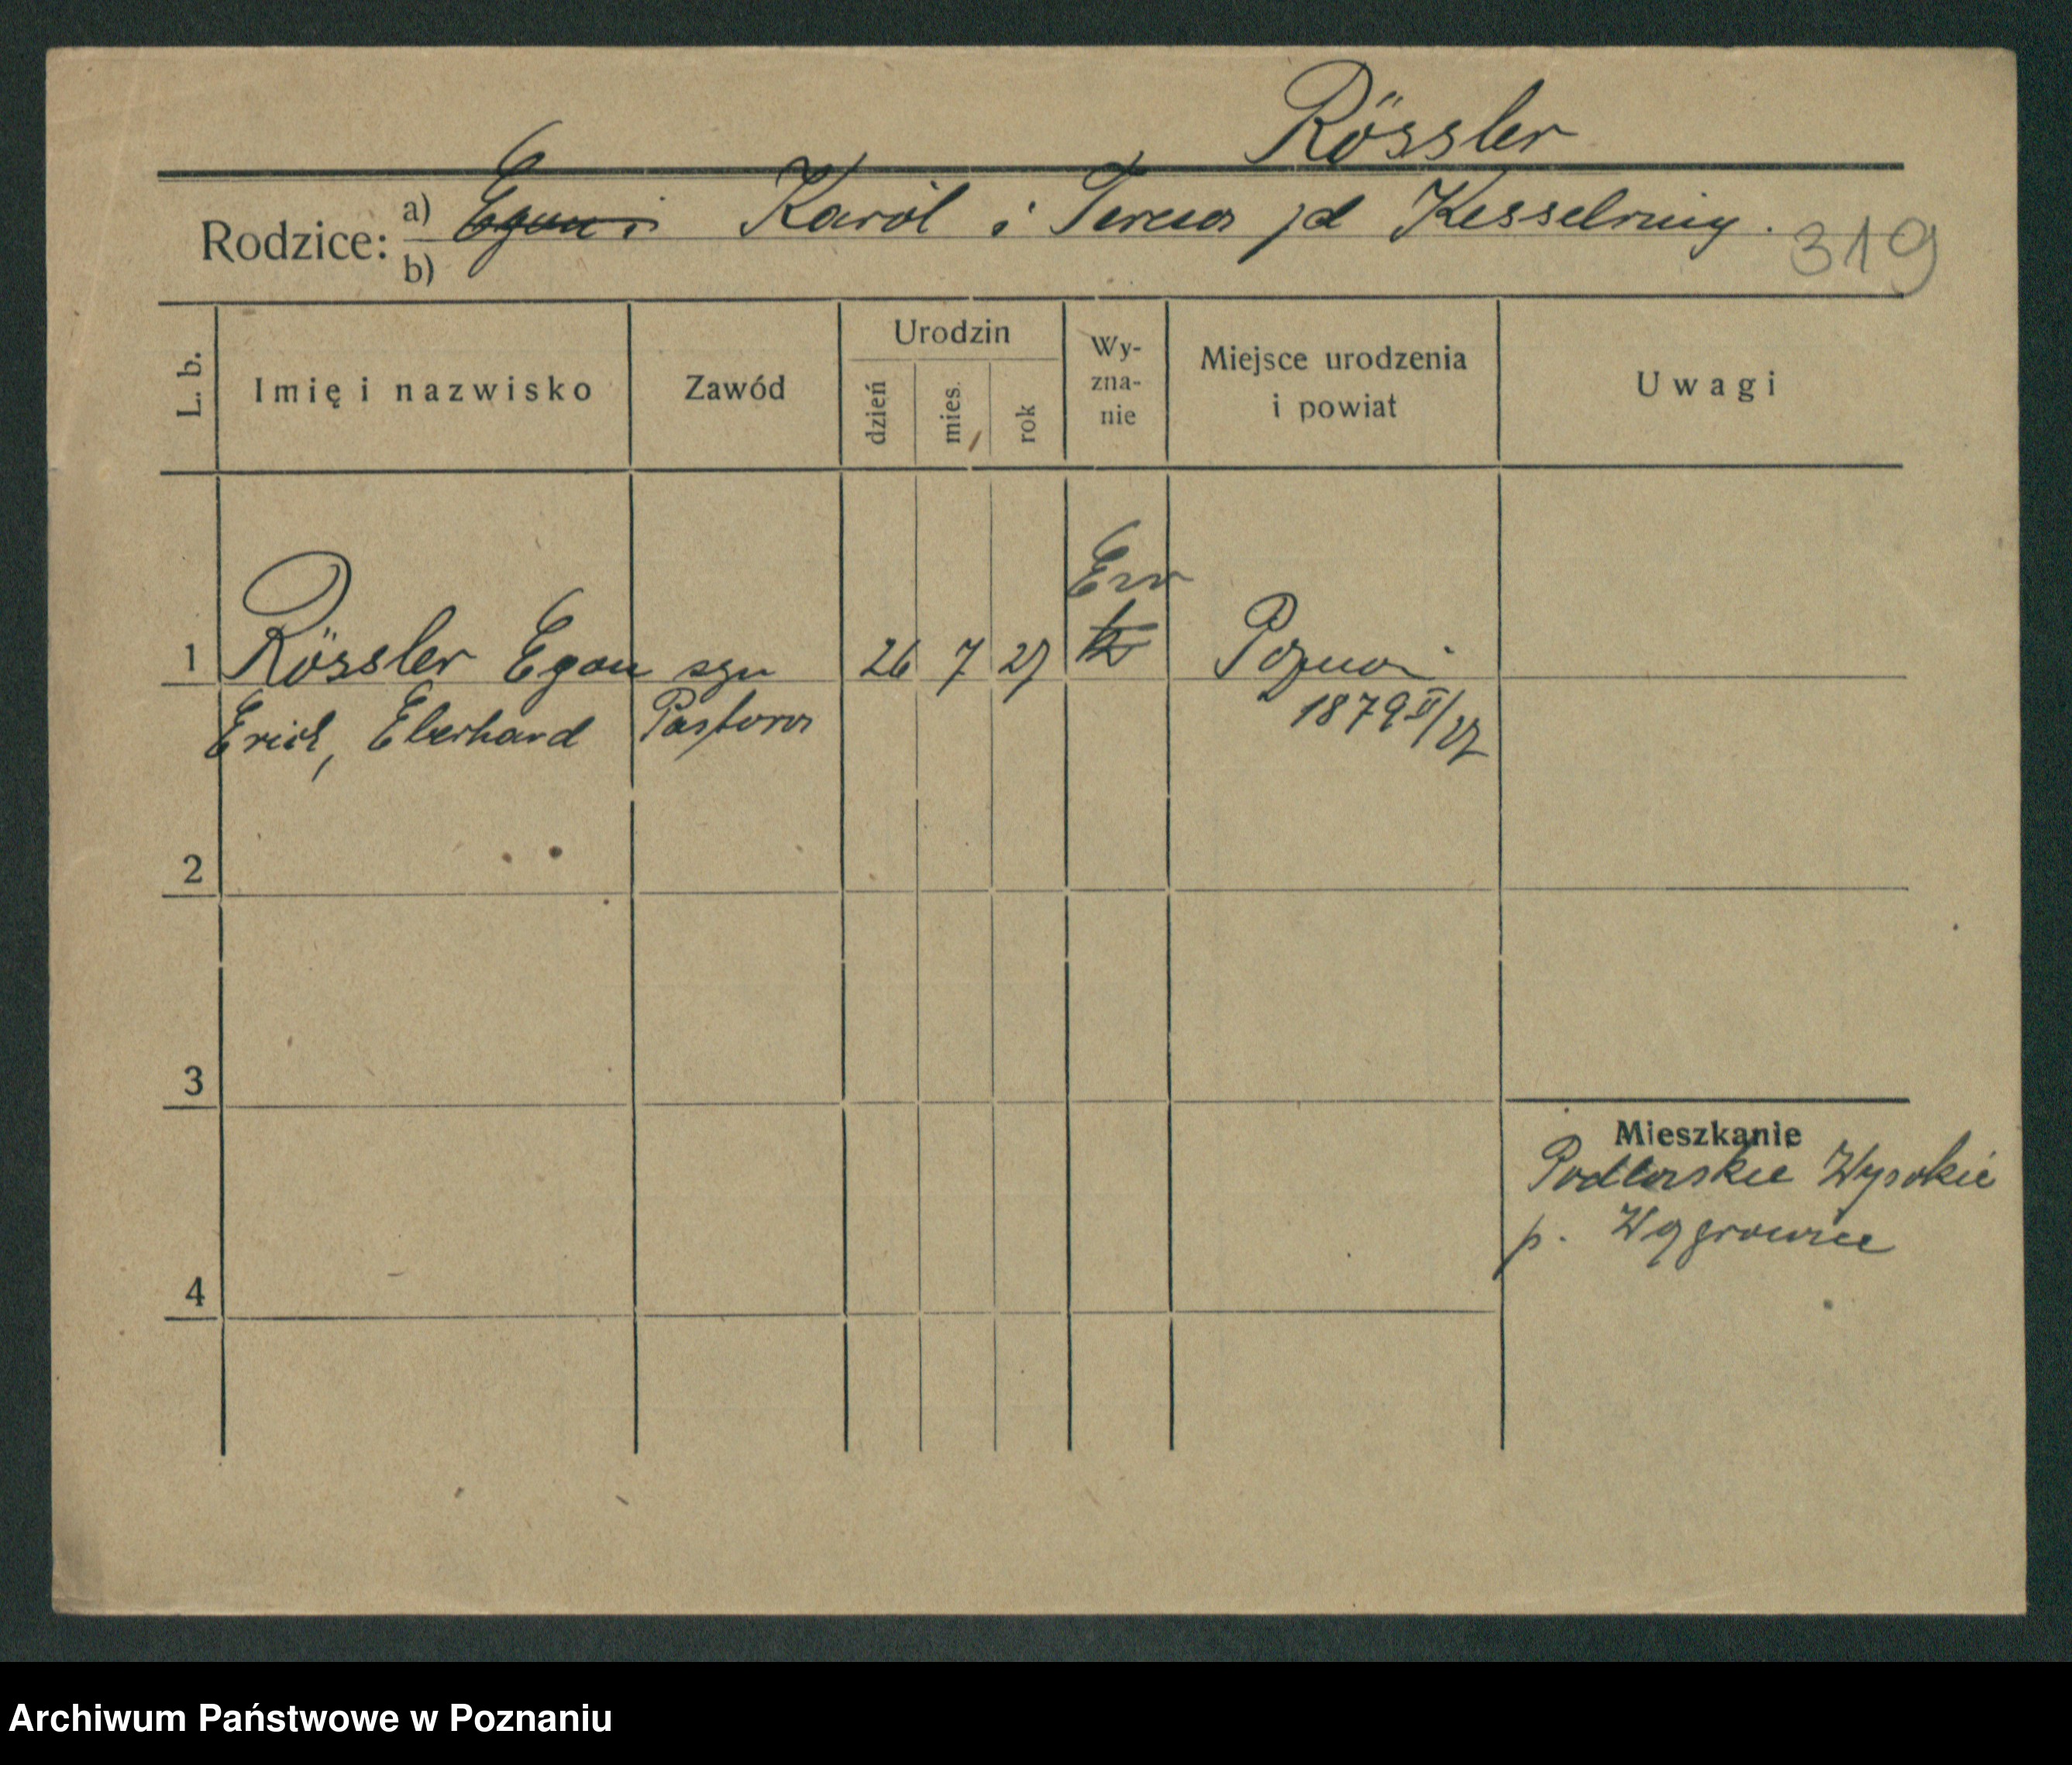 Rössler
Rodzice: a) Egon i Karól i Teresa jd Kesselring.
b)
319
L. b.
Imię i nazwisko
Zawód
Urodzin
dzień
mies.
rok
Wy-
zna-
nie
Miejsce urodzenia
i powiat
Uwagi
Ew
1 Rössler Egon syn 26 7 27 k Poznań
Erich, Eberhard Pastora 1879 II/27
2
3
Mieszkanie
Podlaskie Wysokie
p. Wągrowiec
4
Archiwum Państwowe w Poznaniu